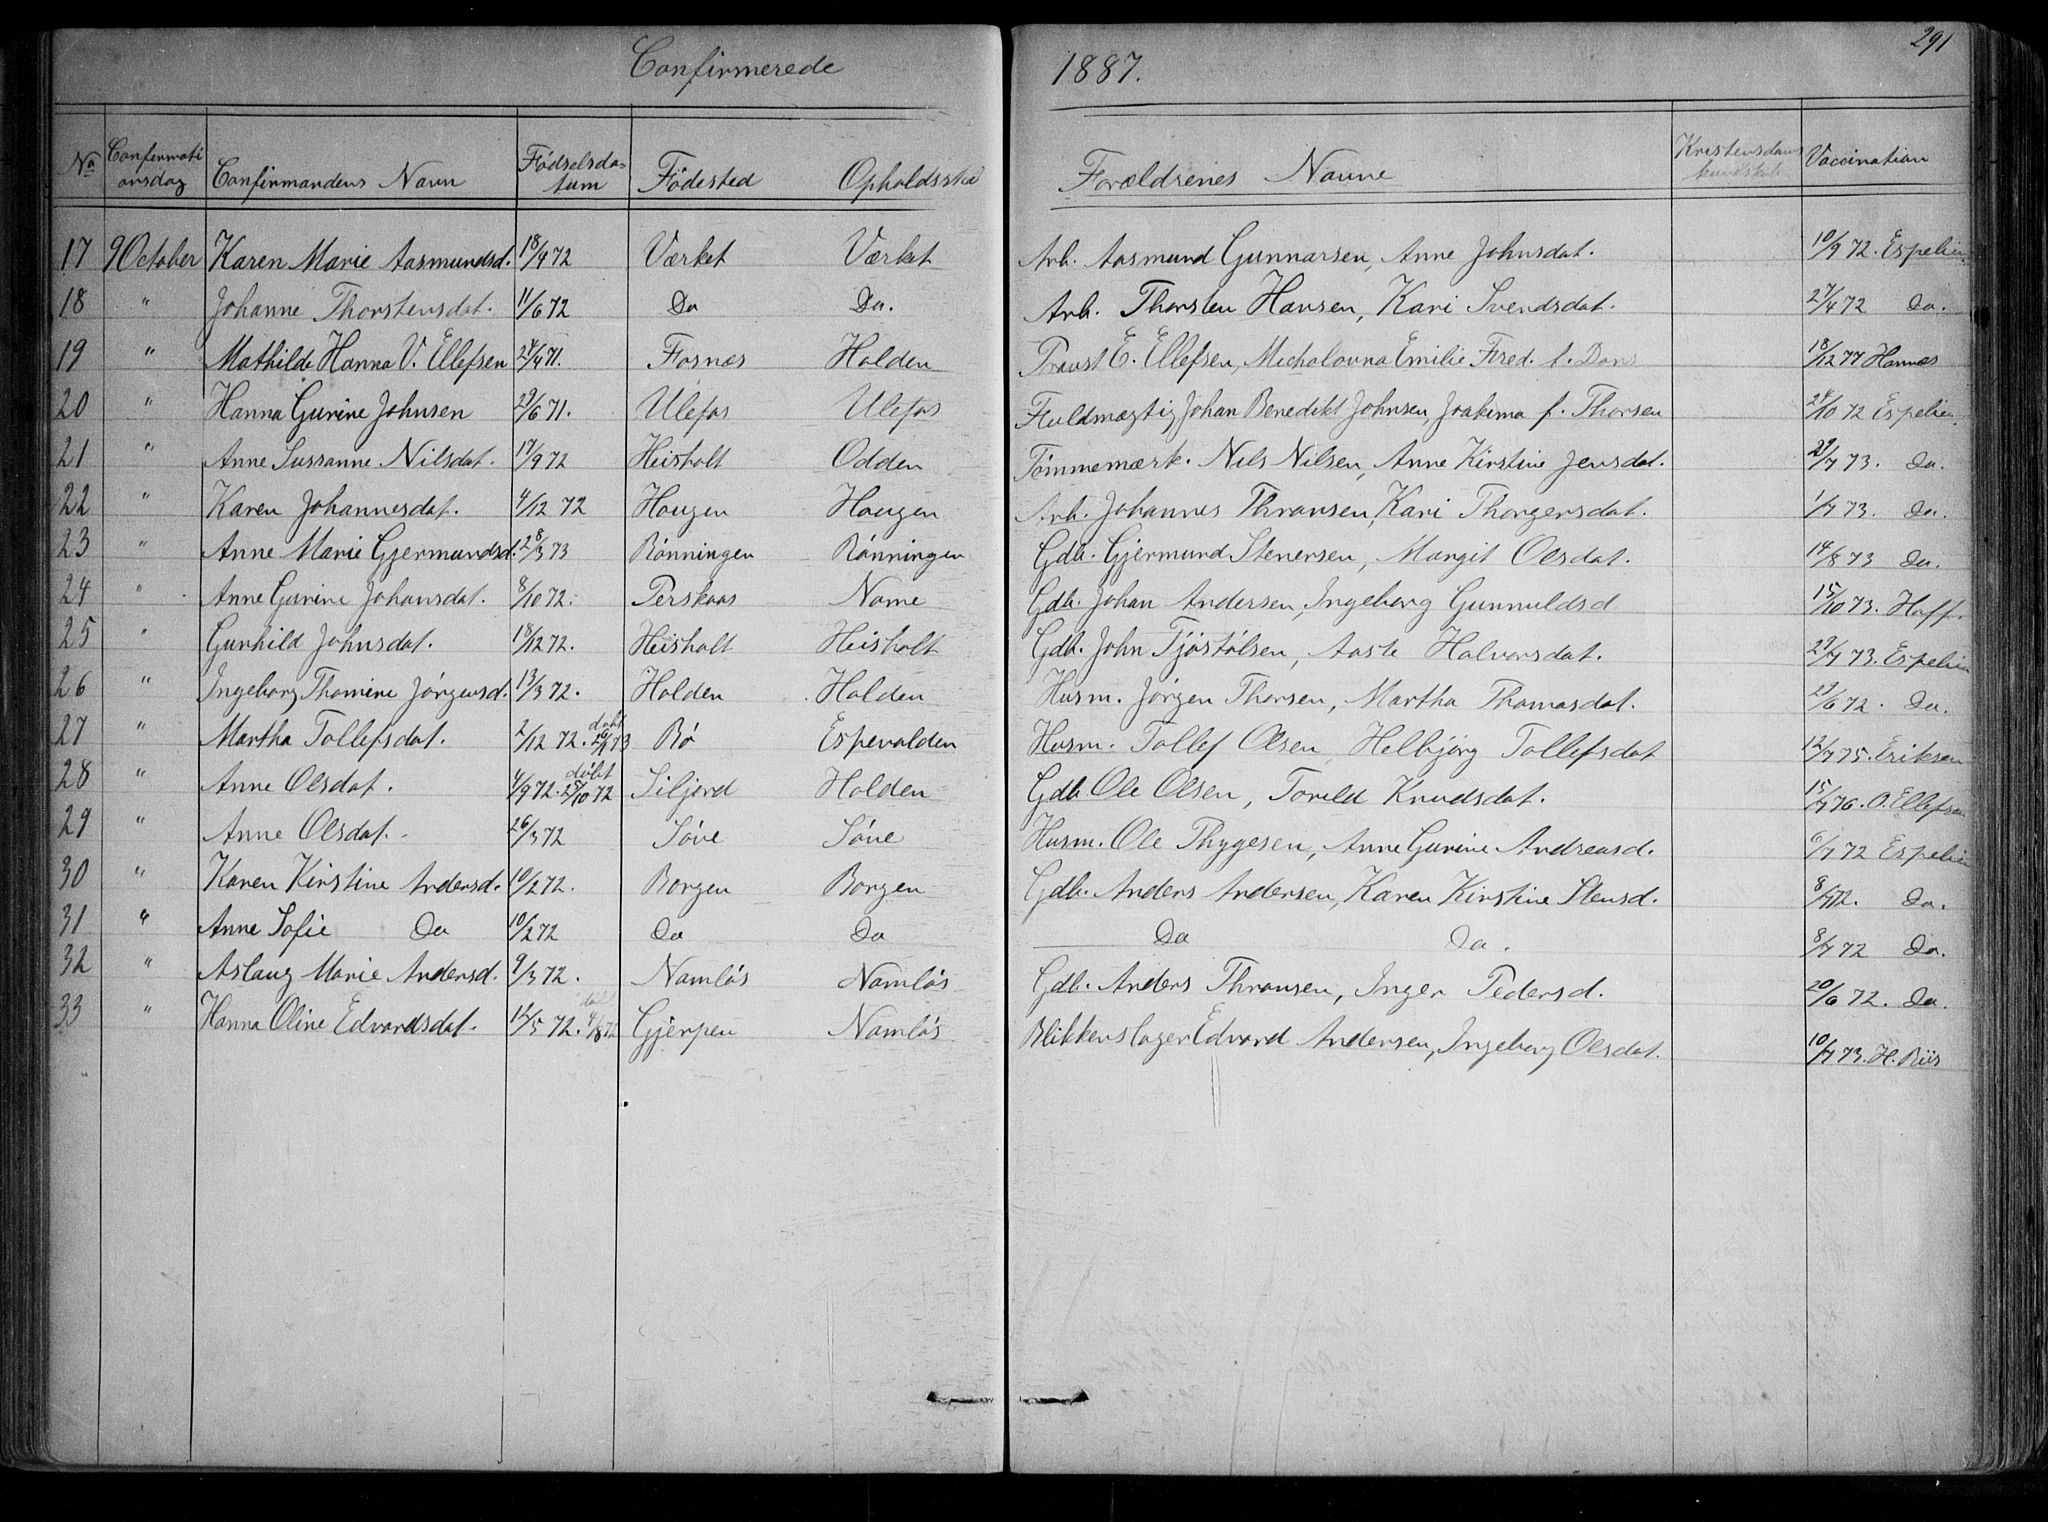 291
Confirmerede 1887.
No Confirmationsdag Confirmandens Navn Fødselsdatum Fødested Opholdssted Forældrenes Navne Kristendomskundskab Vaccination
17 9 October Karen Marie Aasmundsd. 18/4 72 Værket Værket Arb. Aasmund Gunnarsen, Anne Johnsdat. 10/9 72. Espelien
18 " Johanne Thorstensdat. 11/6 72 Do Do. Arb. Thorsten Hansen, Kari Svendsdat. 27/4 72 Do.
19 " Mathilde Hanna V. Ellefsen 24/4 71. Fosnæs Holden E. Ellefsen, Emilie Fred. f. Dons 18/12 77 Hannæs
20 " Hanna Gurine Johnsen 29/6 71. Ulefos Ulefos Fuldmægtig Johan Benedikt Johnsen, Joakima f. Thorsen 24/10 72 Espelien
21 " Anne Sussanne Nilsdat. 17/9 72 Heisholt Odden Tømmemærk. Nils Nilsen, Anne Kirstine Jensdat. 29/7 73. Do.
22 " Karen Johannesdat. 4/12 72 Haugen Haugen Arb. Johannes Thronsen, Kari Thorgersdat. 1/7 73. Do.
23 " Anne Marie Gjermundsd. 28/3 73 Rønningen Rønningen Gdb. Gjermund Stenersen, Margit Olsdat. 14/8 73 Do.
24 " Anne Gurine Johansdat. 8/10 72. Perskaas Nome Gdb. Johan Andersen, Ingeborg Gunnuldsd 15/10 73. Hoff.
25 " Gunhild Johnsdat. 18/12 72. Heisholt Heisholt Gdb. John Tjøstølsen, Aaste Halvorsdat. 29/7 73. Espelien
26 " Ingeborg Thomine Jørgensd. 13/3 72. Holden Holden Husm. Jørgen Thorsen, Martha Thomasdat. 29/6 72. Do.
27 " Martha Tollefsdat. 2/12 72. døbt 73 Bø Espevalden Husm. Tollef Olsen, Helbjørg Tollefsdat 12/7 75. Eriksen
28 " Anne Olsdat. 4/9 72. døbt 25/10 72 Siljord Holden Gdb. Ole Olsen, Torild Knudsdat. 15/7 76. O. Ellefsen
29 " Anne Olsdat. 26/3 72 Søve Søve Husm. Ole Thygesen, Anne Gurine Andreasd. 6/7 72 Espelien
30 " Karen Kirstine Andersd. 10/2 72. Borgen Borgen Gdb. Anders Andersen, Karen Kirstine Stensd. 8/7 72. Do.
31 " Anne Sofie Do 10/2 72 Do Do Do Do. 8/7 72 Do.
32 " Aslaug Marie Andersd. 9/3 72. Namløs Namløs Gdb. Anders Thronsen, Inger Pedersd. 20/6 72. Do.
33 " Hanna Oline Edvardsdat. 12/5 72. døbt 4/8 72 Gjerpen Namløs Blikkenslager Edvard Andersen, Ingeborg Olsdat. 10/7 73. H. Riis